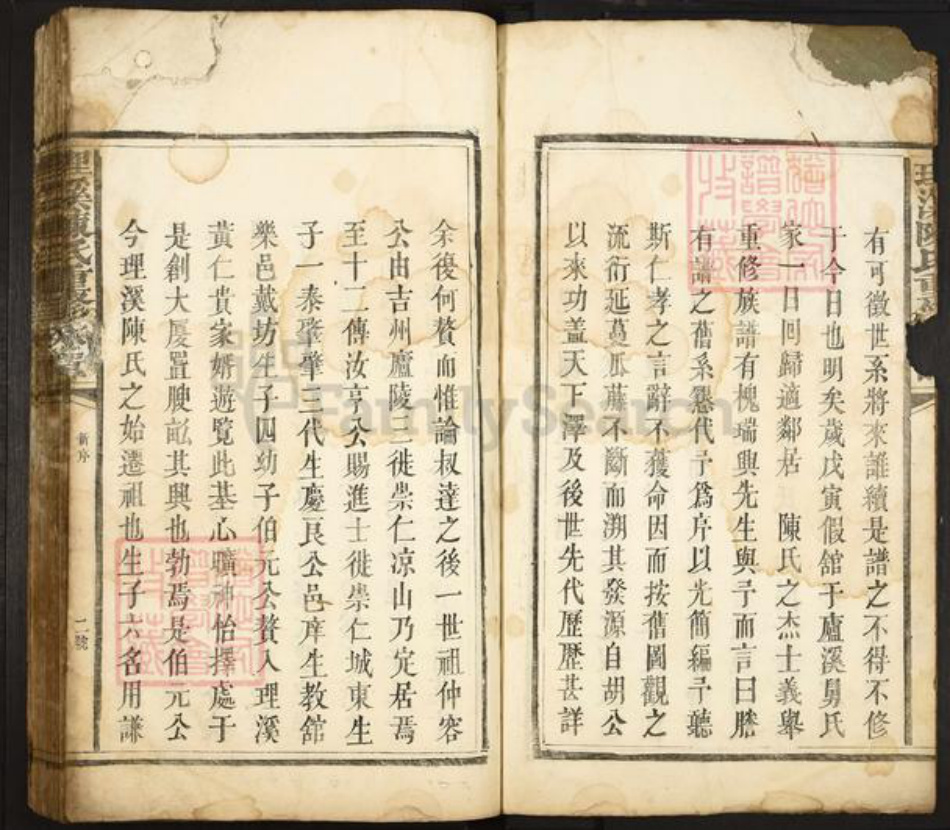 有可徵世系將來誰續是譜之不得不修
于今日也明矣歲戊寅假舘于廬溪舅氏
家一日回歸適鄰居 陳氏之杰士義舉
重修族譜有槐瑞與先生與予而言曰勝
有譜之舊系懇代予為序以光簡編予聽
斯仁孝之言辭不獲命因而按舊圖觀之
流衍延蔓瓜藤不斷而溯其發源自胡公
以來功盖天下澤及後世先代歷歷甚詳
余復何贅而惟論叔達之後一世祖仲容
公由吉州廬陵三徙崇仁凉山乃定居焉
至十二傳汝亨公賜進士徙崇仁城東生
子一泰肇肇三代生慶良公邑庠生教舘
樂邑戴坊生子四幼子伯元公贅入理溪
黃仁貴家婿遊覽此基心曠神怡擇處于
是創大廈置腴畝其興也勃焉是伯元公
今理溪陳氏之始遷祖也生子六名用謙
理溪陳氏重修
新序
二號
FamilySearch